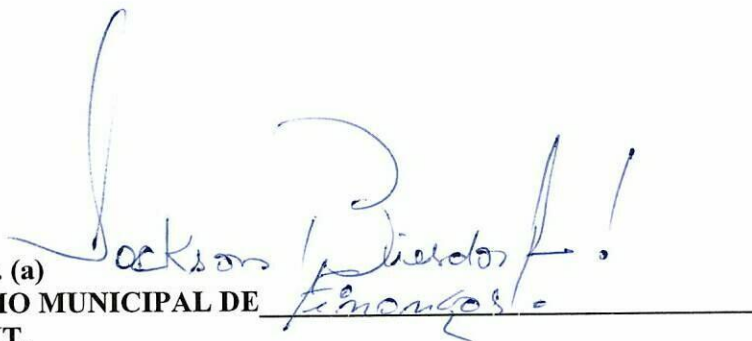 Jackson Biesdorf!
. (a)
IO MUNICIPAL DE Finanças.
NT